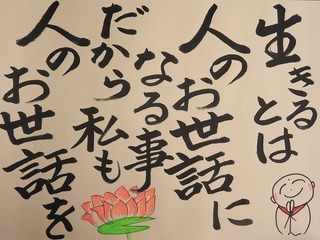 生きる
とは
人のお世話に
なる事
だから私も
人の
お世話を